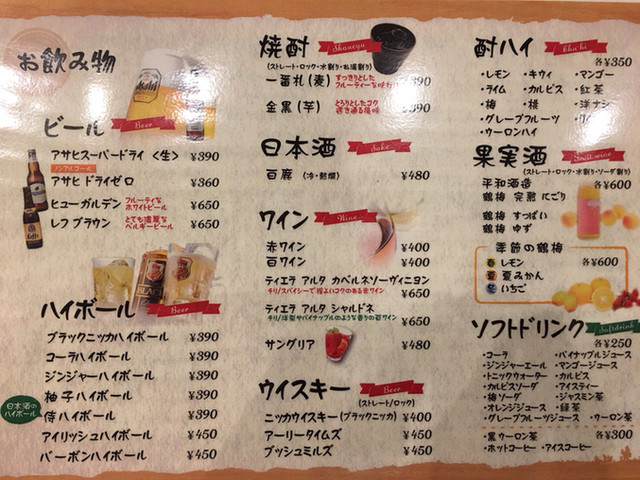 お飲み物
Asahi
ビール
Beer
アサヒスーパードライ <生> ¥390
ノンアルコール
アサヒ ドライゼロ ¥360
ヒューガルデン フルーティな ホワイトビール ¥650
レフ ブラウン とても濃厚な ベルギービール ¥650
ハイボール
Beer
ブラックニッカハイボール ¥390
コーラハイボール ¥390
ジンジャーハイボール ¥390
柚子ハイボール ¥390
日本酒の
ハイボール
侍ハイボール ¥390
アイリッシュハイボール ¥450
バーボンハイボール ¥450
焼酎
Shouchu
(ストレート・ロック・水割り・お湯割り)
一番札(麦) すっきりとした フルーティーな味わい 390
金黒(芋) とろりとしたコク 390
日本酒
Sake
百鹿 (冷・熱燗) ¥480
ワイン
Wine
赤ワイン ¥400
白ワイン ¥400
ティエラ アルタ カベルネソーヴィニヨン
チリ/スパイシーで程よいコクのある赤ワイン ¥650
ティエラ アルタ シャルドネ
チリ/洋梨やパイナップルのような香りの白ワイン ¥650
サングリア ¥480
ウイスキー
Beer
(ストレート/ロック)
ニッカウイスキー(ブラックニッカ) ¥400
アーリータイムズ ¥450
ブッシュミルズ ¥450
酎ハイ
Chu hi
各¥350
・レモン ・キウイ ・マンゴー
・ライム ・カルピス ・紅茶
・梅 ・桃 ・洋ナシ
・グレープフルーツ
・ウーロンハイ
果実酒
Fruit wine
(ストレート・ロック・水割り・ソーダ割り)
平和酒造 各¥600
鶴梅 完熟 にごり
鶴梅 すっぱい
鶴梅 ゆず
季節の鶴梅
春 レモン 各¥600
夏 夏みかん
冬 いちご
ソフトドリンク
Softdrink
各¥250
・コーラ ・パイナップルジュース
・ジンジャーエール ・マンゴージュース
・トニックウォーター ・カルピス
・カルピスソーダ ・アイスティー
・梅ソーダ ・ジャスミン茶
・オレンジジュース ・緑茶
・グレープフルーツジュース ・ウーロン茶
各¥300
・黒ウーロン茶
・ホットコーヒー ・アイスコーヒー